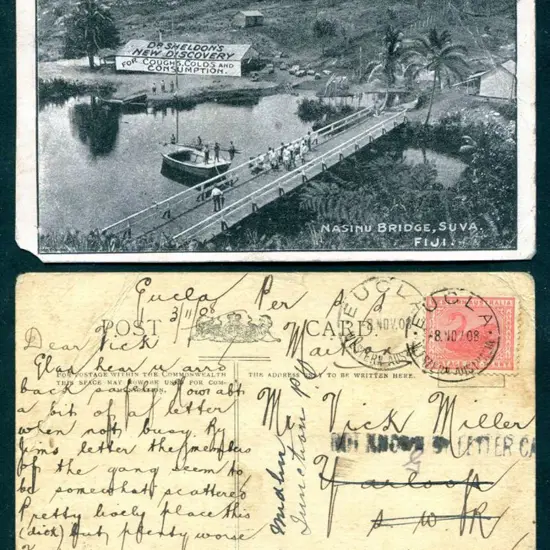 DR SHELDONS
NEW DISCOVERY
FOR COUGHS, COLDS AND
CONSUMPTION.
NASINU BRIDGE, SUVA.
FIJI.
Eucla Per
3/11/08
POST CARD
EUCLA
8.NOV.08
WESTERN AUSTRALIA
EUCLA
8.NO.08
WESTERN AUSTRALIA
Dear Vick
Glad hear u arrd
POSTAGE WITHIN THE COMMONWEALTH
THIS SPACE MAY NOW BE USED FOR COM-
THE ADDRESS ONLY TO BE WRITTEN HERE.
back safely How abt
a bit of a letter
when not busy By
Jims letter the members
of the gang seem to
be somewhat scattered
Pretty lively place this
(dick) but plenty worse
Mr Vick Miller
NOT KNOWN BY LETTER CA
Yarloop
S W R
Midln
Junction P.O